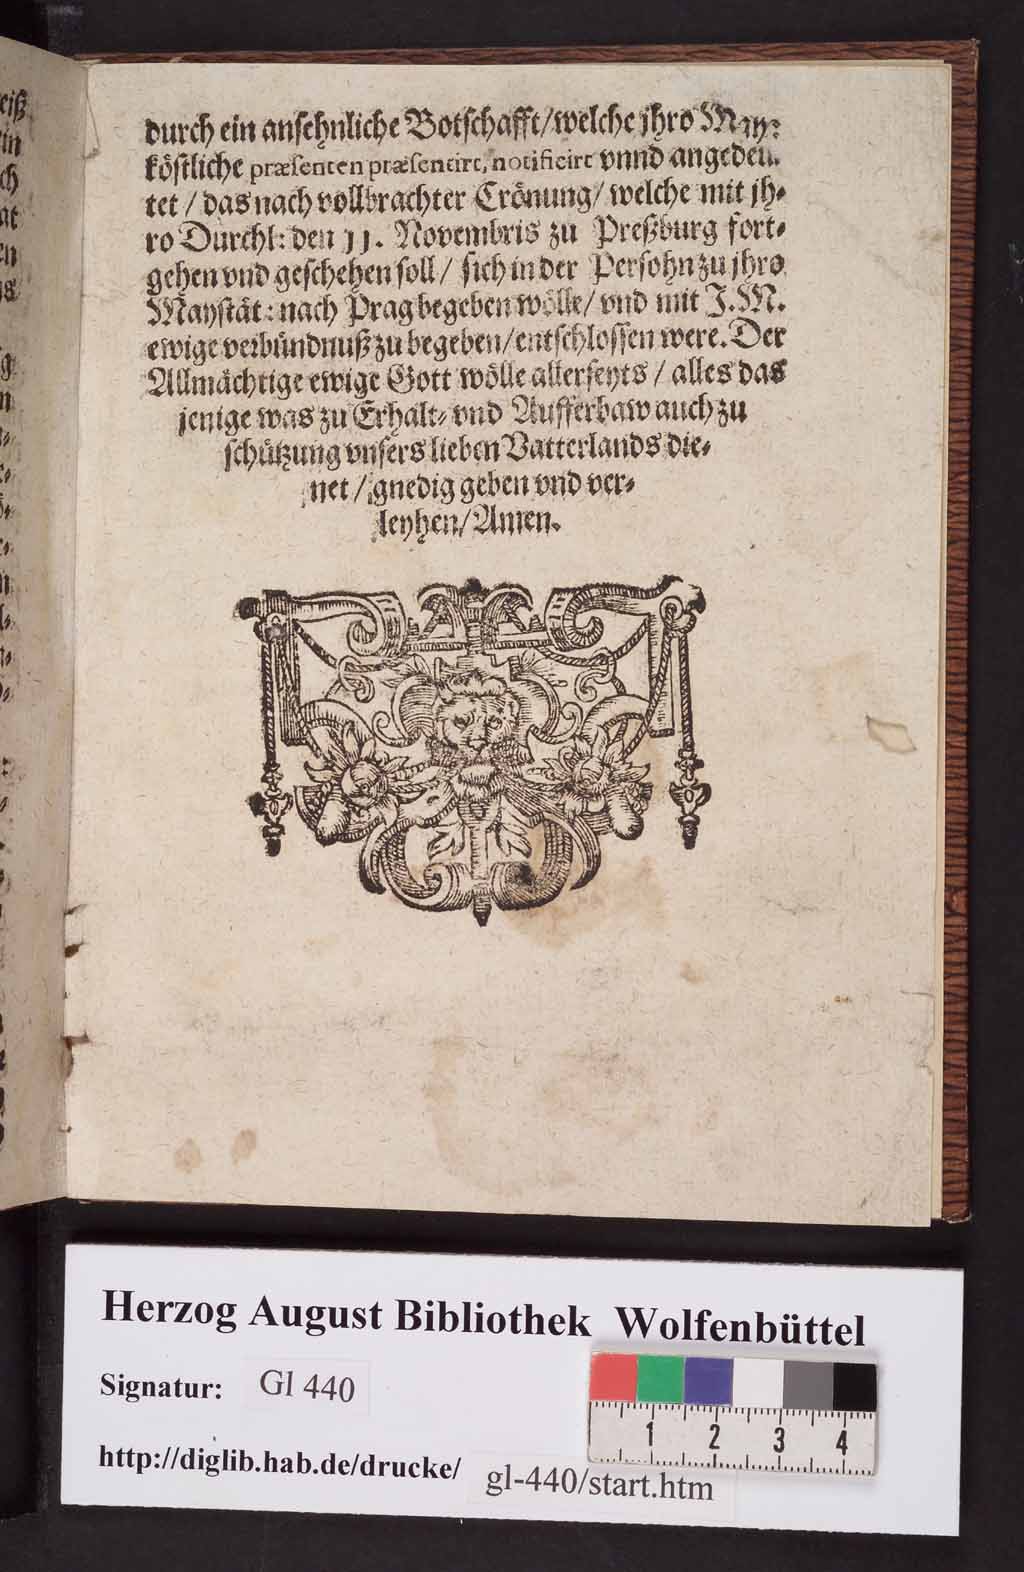 durch ein ansehnliche Botschafft/welche jhro May:
köstliche præsenten præsentirt, notificirt vnnd angedeu-
tet / das nach vollbrachter Crönung/ welche mit jh-
ro Durchl: den 11. Novembris zu Preßburg fort-
gehen vnd geschehen soll/ sich in der Persohn zu jhro
Mayståt: nach Prag begeben wölle/ vnd mit J.M.
ewige verbündnuß zu begeben/entschlossen were. Der
Allmächtige ewige Gott wölle allerseyts / alles das
jenige was zu Erhalt- vnd Aufferbaw auch zu
schützung vnsers lieben Vatterlands die-
net / gnedig geben vnd ver-
leyhen/Amen.
Herzog August Bibliothek Wolfenbüttel
Signatur: Gl 440
1 2 3 4
http://diglib.hab.de/drucke/ gl-440/start.htm